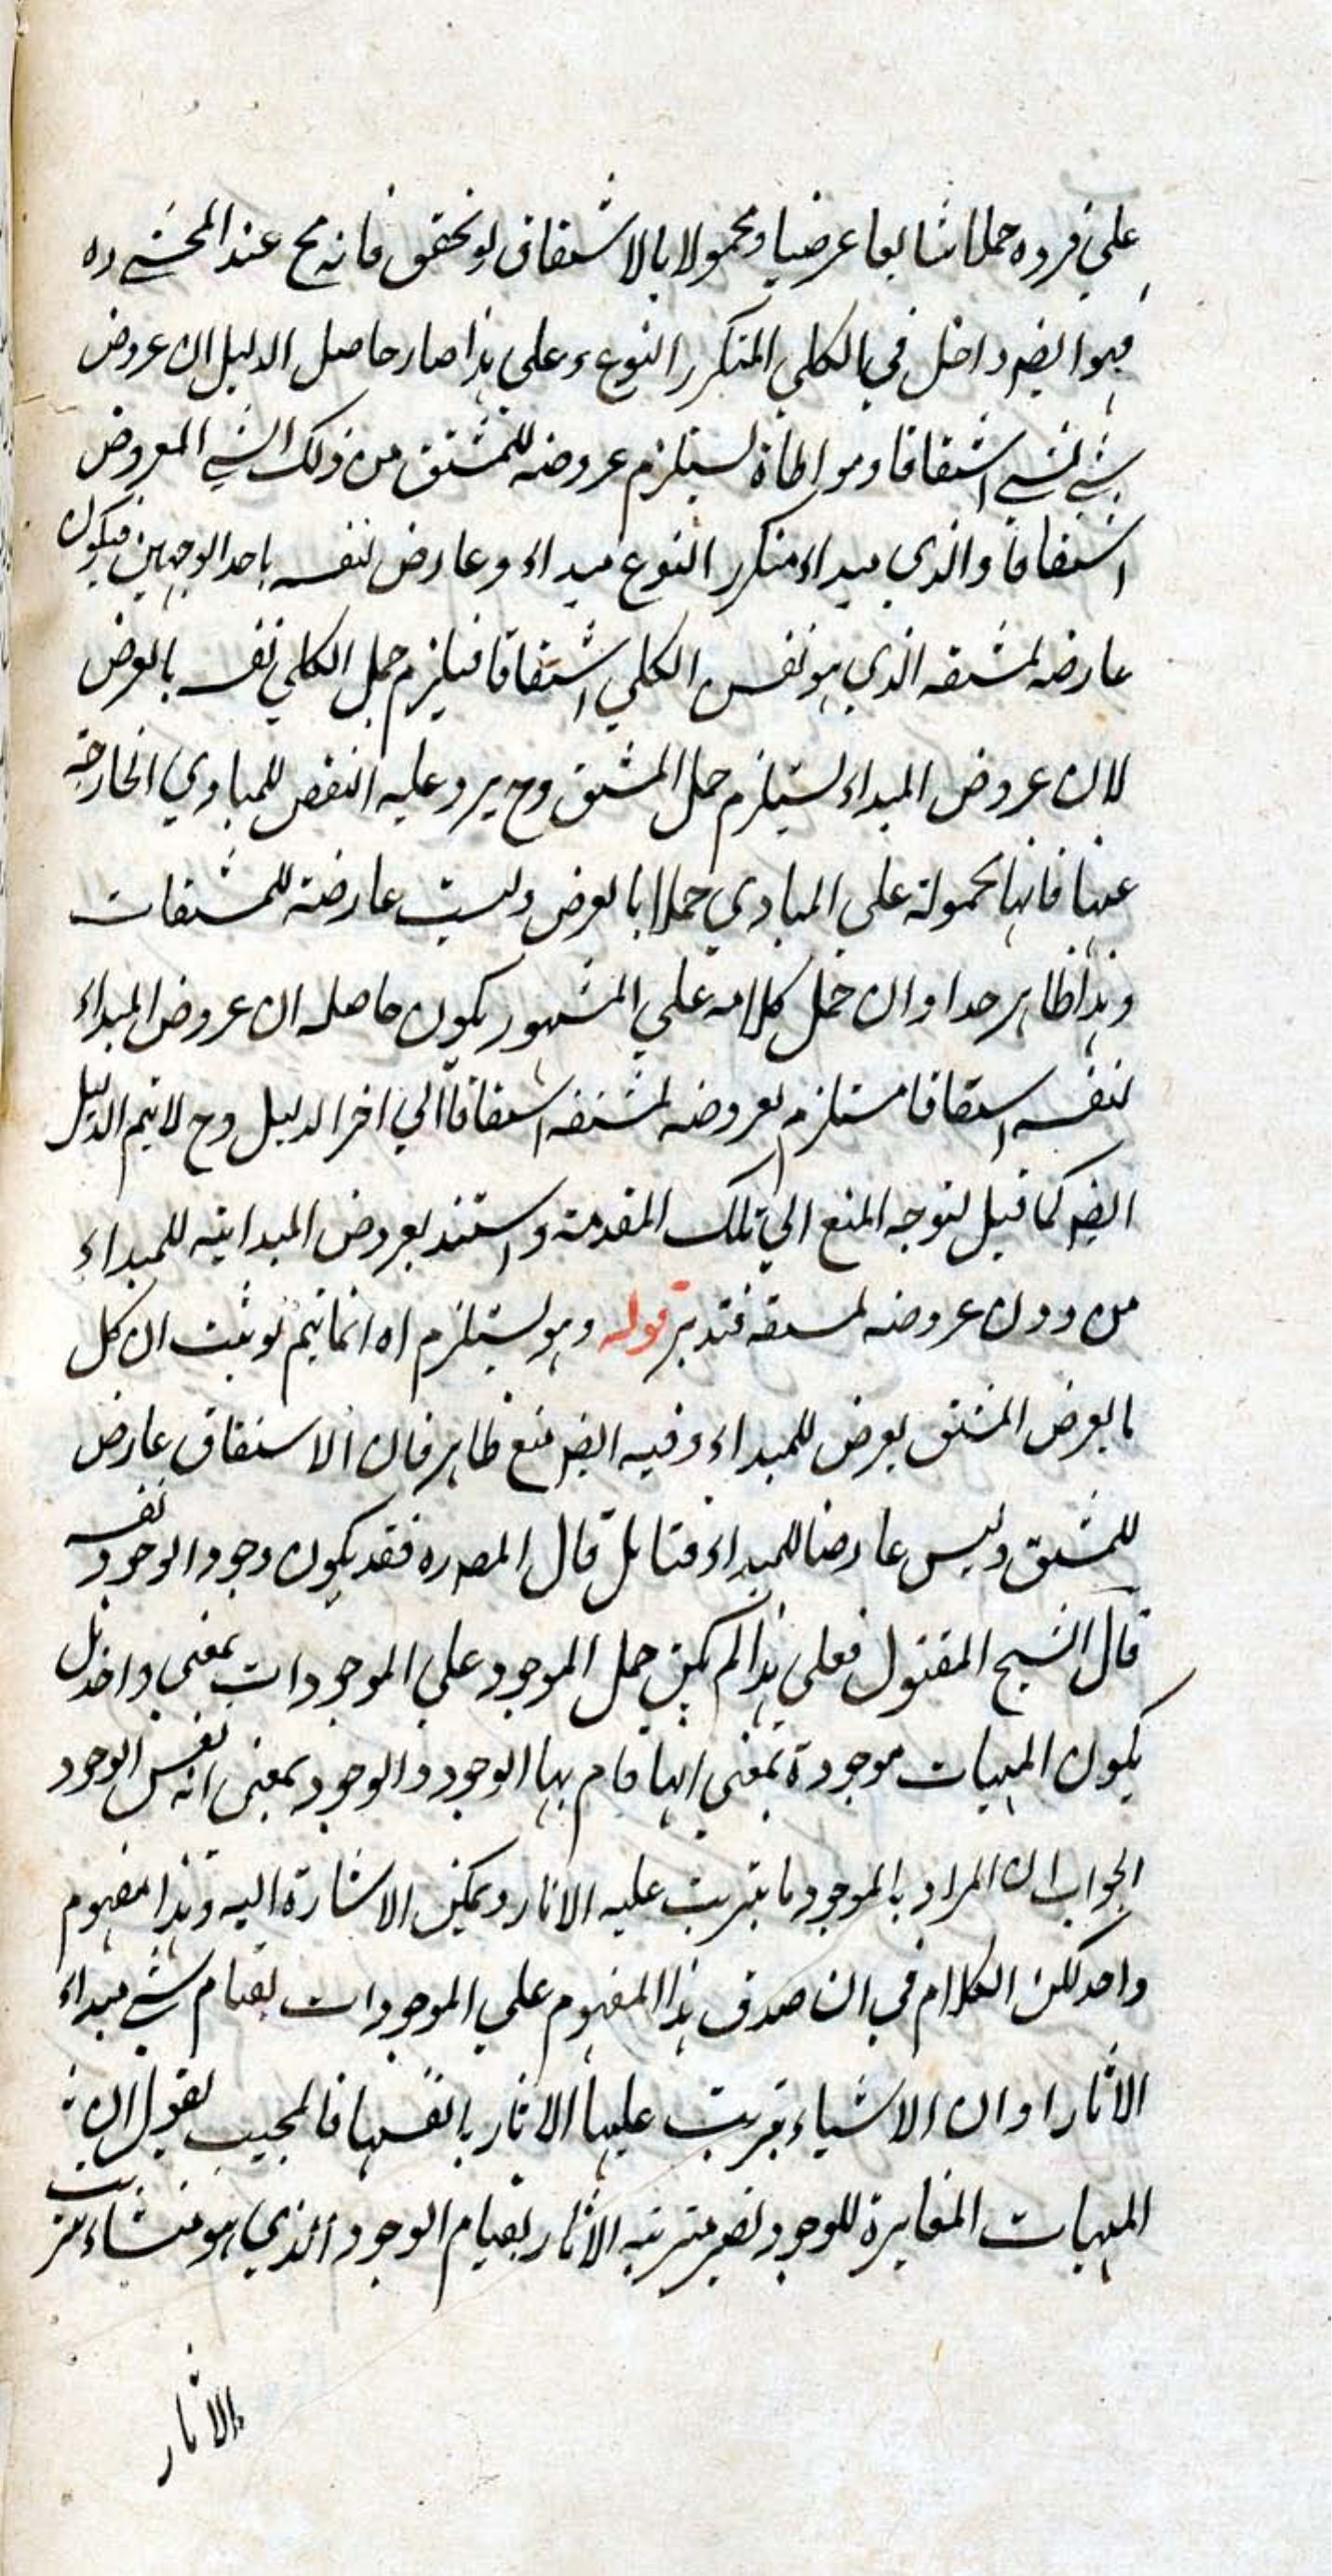 علي فرده حملا شايعا عرضيا ومحمولا بالاشتقاق لو تحقق فانه مح عند المحشي ره
فهو ايضه داخل في الكلي المتكرر النوع وعلى هذا صار حاصل الدليل ان عروض
شي لشي اشتقاقا ومواطاة يستلزم عروضه للمشتق من ذلك الشي المعروض
اشتقاقا والذي مبداء متكرر النوع مبداء وعارض لنفسه باحد الوجهين فيكون
عارضه لمشتقه الذي هو نفس الكلي اشتقاقا فيلزم حمل الكلي نفسه بالعرض
لان عروض المبداء يستلزم حمل المشتق وح يرد عليه النقض للمبادي الخارجة
عنها فانها محمولة علي المبادي حملا بالعرض وليست عارضة للمشتقات
وهذا ظاهر جدا وان حمل كلامه علي المشهور يكون حاصله ان عروض المبداء
لنفسه اشتقاقا مستلزم لعروضه لمشتقه اشتقاقا الي اخر الدليل وح لا يتم الدليل
ايضه كما قيل لتوجه المنع الي تلك المقدمة واستند بعروض المبدائية للمبداء
من دون عروضه لمشتقه فتدبر قوله وهو يستلزم اه انما يتم لو ثبت ان كل
ما يعرض المشتق يعرض للمبداء وفيه ايضه منع ظاهر فان الاشتقاق عارض
للمشتق وليس عارضا للمبداء فتامل قال المصه ره فقد يكون وجود الوجود نفسه
قال الشيخ المقتول فعلى هذا لم يكن حمل الموجود علي الموجودات بمعني واحد بل
يكون المهيات موجودة بمعني انها قام بها الوجود والوجود بمعنى انه نفس الوجود
الجواب ان المراد بالموجود ما يترتب عليه الاثار ويمكن الاشارة اليه وهذا مفهوم
واحد لكن الكلام في ان صدق هذا المفهوم علي الموجودات لقيام شي مبداء
الاثار او ان الاشياء يترتب عليها الاثار بانفسها فالمجيب يقول ان
المهيات المغايرة للوجود يصير مترتبه الاثار بقيام الوجود الذي هو منشاء ترتب
الاثار